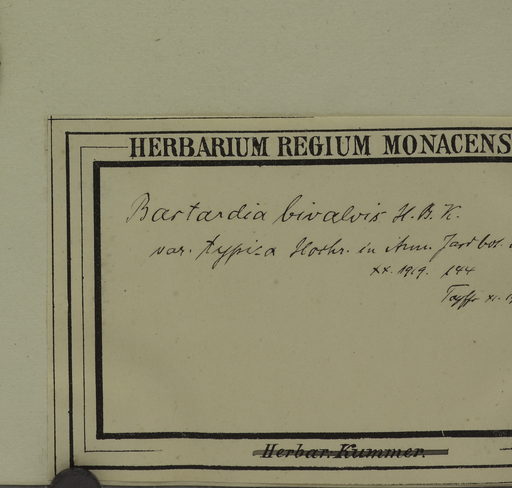 HERBARIUM REGIUM MONACENS
Bastardia bivalvis H.B.K.
var. typica Hochr. in Ann. Jard bot.
XX. 1919. 144
XI.
Herbar. Kummer.